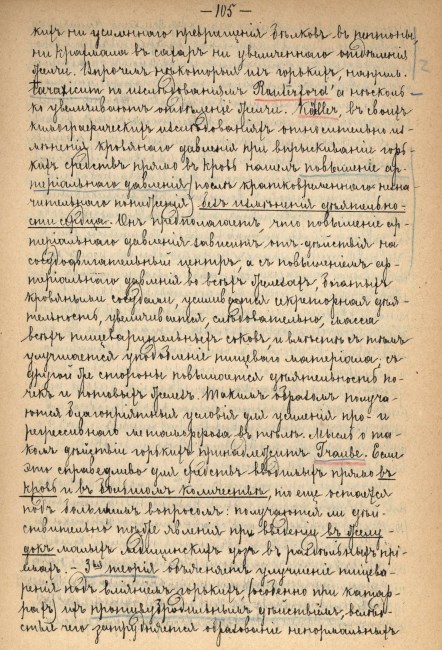 — 105 —
кихъ ни усиленнаго превращенія бѣлковъ въ пептоны,
ни крахмала въ сахаръ ни увеличеннаго отдѣленія
желчи. Впрочемъ некоторыя изъ горькихъ, наприм.
taraxicum по изслѣдованіямъ Rauterford'а нѣсколь-
ко увеличиваютъ отдѣленіе желчи. Köhler, въ своихъ
кимографическихъ изслѣдованіяхъ относительно из-
мѣненія кровянаго давленія при впрыскиваніи горь-
кихъ средствъ прямо въ кровь нашелъ повышеніе ар-
теріальнаго давленія (послѣ кратковременнаго незна-
чительнаго пониженія) безъ измѣненія дѣятельно-
сти сердца. Онъ предполагаетъ, что повышеніе ар-
теріальнаго давленія зависитъ отъ дѣйствія на
сосудодвигательный центръ, а съ повышеніемъ ар-
теріальнаго давленія во всѣхъ железахъ, богатыхъ
кровяными сосудами, усиливается секреторная дѣя-
тельность, увеличивается, слѣдовательно, масса
всѣхъ пищеварительныхъ соковъ и вмѣстѣ съ тѣмъ
улучшается уподобленіе пищеваго матеріала; съ
другой же стороны повышается дѣятельность по-
чекъ и потовыхъ железъ. Такимъ образомъ получа-
ются благопріятныя условія для усиленія про- и
регрессивнаго метаморфоза въ тѣлѣ. Мысль о та-
комъ дѣйствіи горькихъ принадлежитъ Traube. Если
это справедливо для средствъ вводимыхъ прямо въ
кровь и въ большомъ количествѣ, то еще остается
подъ большимъ вопросомъ: получаются ли дѣй-
ствительно тѣже явленія при введеніи въ желу-
докъ малыхъ медицинскихъ дозъ въ раздѣльныхъ прі-
емахъ. — 3ья теорія объясняетъ улучшеніе пищева-
ренія подъ вліяніемъ горькихъ (особенно при катар-
рахъ) ихъ противубродильнымъ дѣйствіемъ, вслѣд-
ствіе чего затрудняется образованіе ненормальныхъ